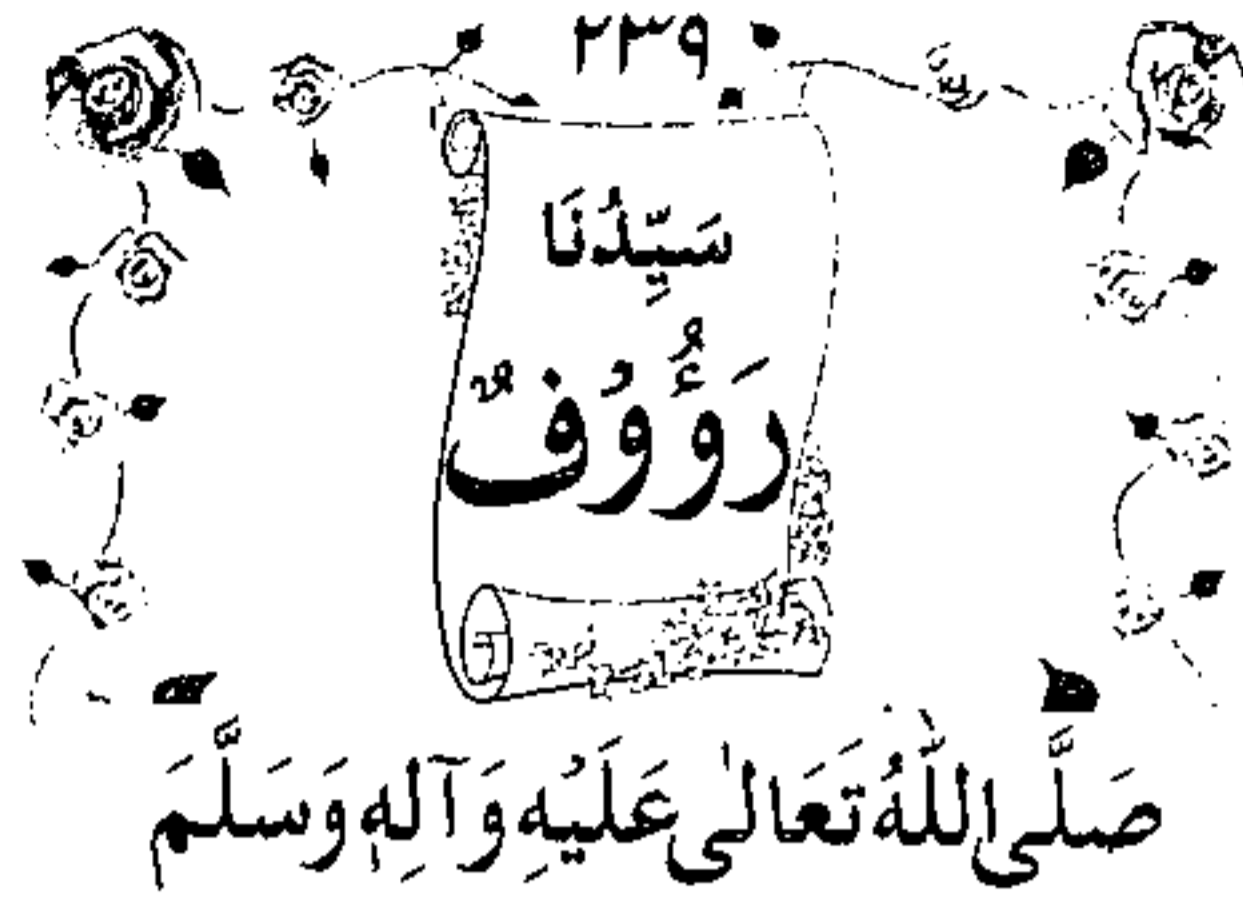 ٢٣٩
سَيِّدُنَا
رَؤُوْفٌ
صَلَّى اللّٰهُ تَعَالٰى عَلَيْهِ وَآلِهٖ وَسَلَّمَ